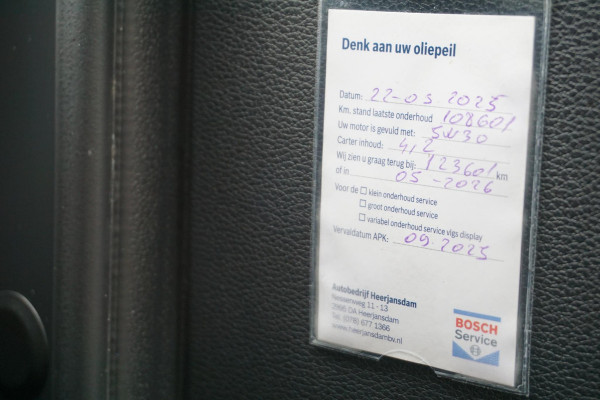 Denk aan uw oliepeil
Datum: 22-05 2025
Km. stand laatste onderhoud 108601
Uw motor is gevuld met: 5W30
Carter inhoud: 4,2
Wij zien u graag terug bij: 123601 km
of in 05-2026
Voor de □ klein onderhoud service
□ groot onderhoud service
□ variabel onderhoud service vlgs display
Vervaldatum APK: 09.2025
Autobedrijf Heerjansdam
11 - 13
2995 Heerjansdam
Tel. (078) 677 1366
www.heerjansdambv.nl
BOSCH
Service